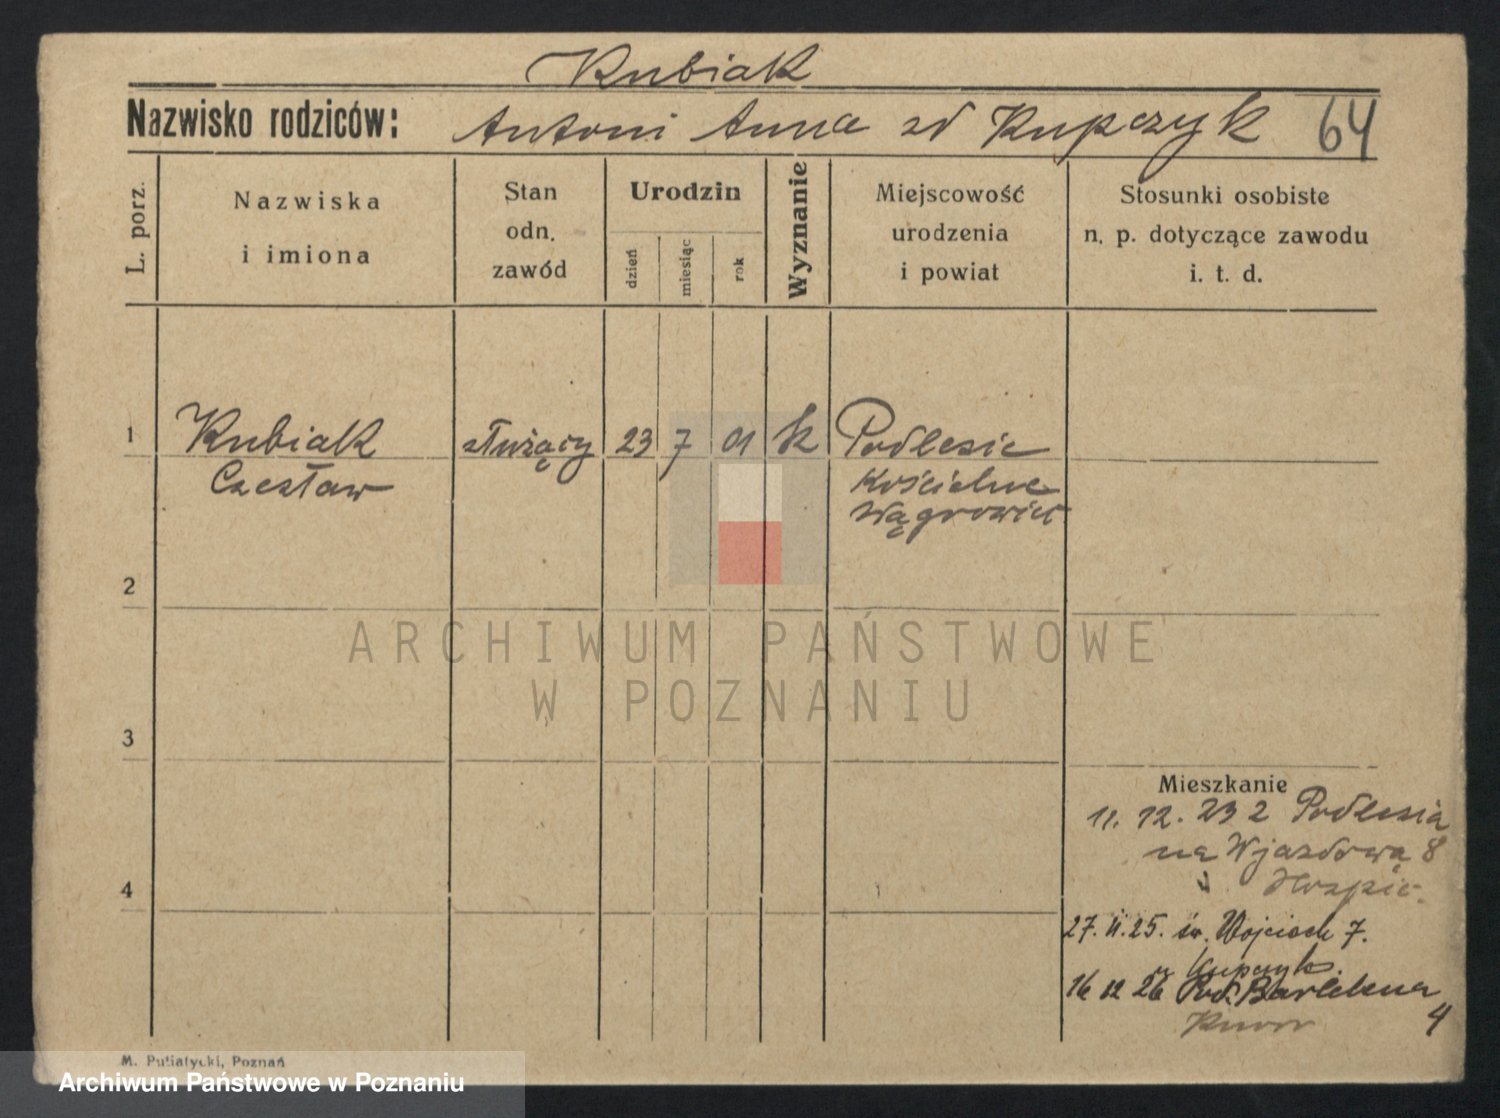 Kubiak
Nazwisko rodziców: Antoni Anna zd Kupczyk 64
L. porz.
Nazwiska
i imiona
Stan
odn.
zawód
Urodzin
dzień
miesiąc
rok
Wyznanie
Miejscowość
urodzenia
i powiat
Stosunki osobiste
n. p. dotyczące zawodu
i. t. d.
1 Kubiak służący 23 7 01 k Podlesie
Czesław Kościelne
Wągrowiec
2
ARCHIWUM PAŃSTWOWE
W POZNANIU
3
Mieszkanie
11. 12. 23 z Podlesia
na Wjazdowa 8
4
27. 11. 25. św. Wojciech 7.
Kupczyk.
16 12 26 Pod.
4
M. Putiatycki, Poznań
Archiwum Państwowe w Poznaniu